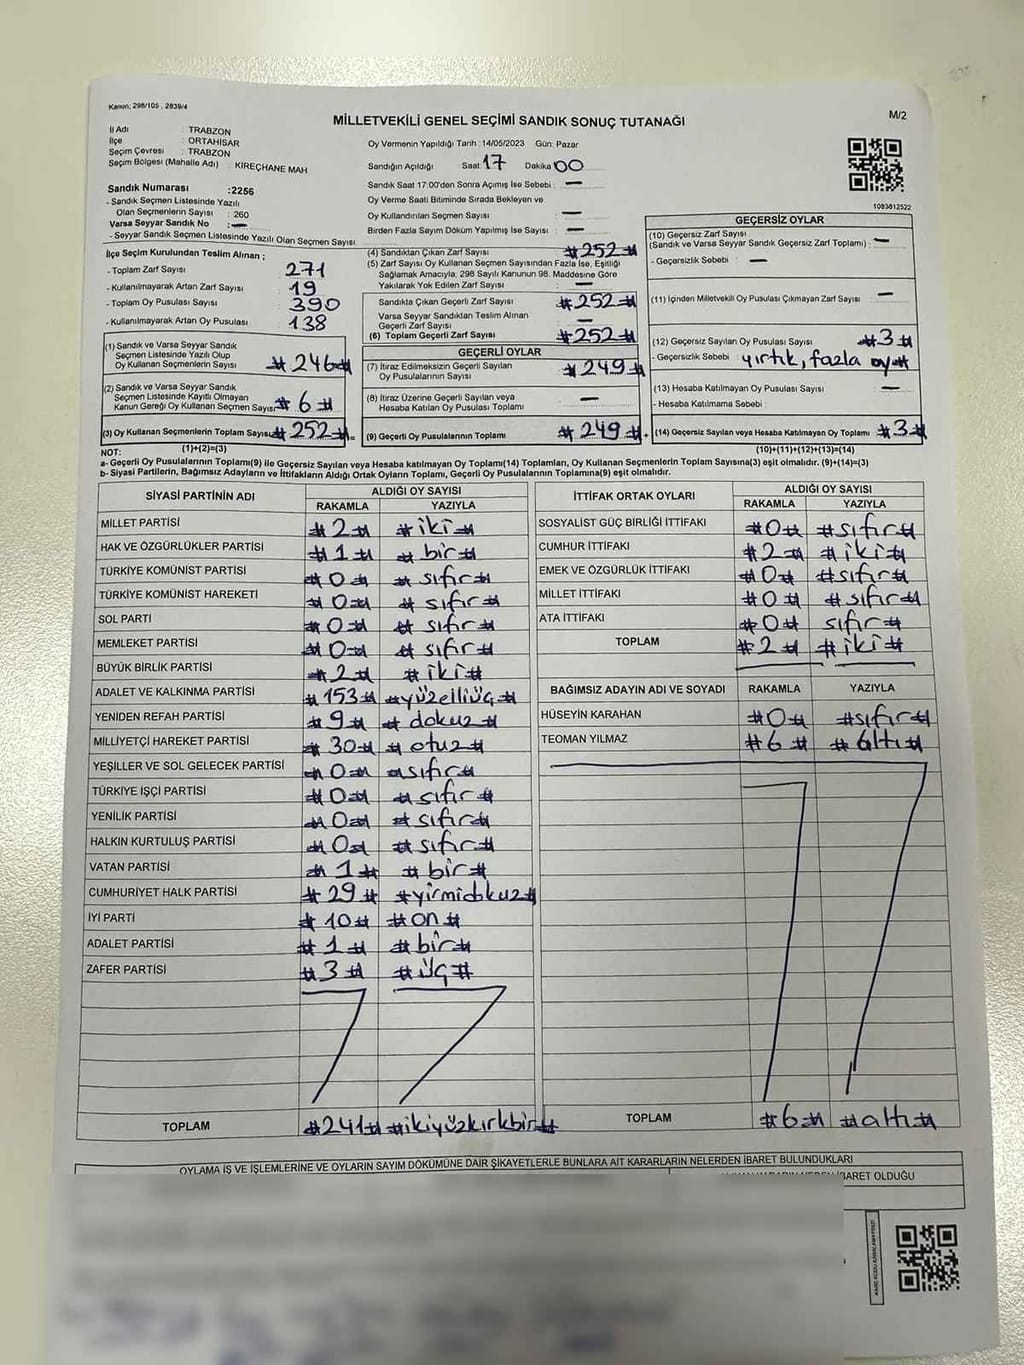 Kanun; 298/105 , 2839/4
M/2
MİLLETVEKİLİ GENEL SEÇİMİ SANDIK SONUÇ TUTANAĞI
İl Adı : TRABZON
İlçe : ORTAHİSAR
Seçim Çevresi : TRABZON
Seçim Bölgesi (Mahalle Adı) : KİREÇHANE MAH
Sandık Numarası :2256
- Sandık Seçmen Listesinde Yazılı
Olan Seçmenlerin Sayısı : 260
Varsa Seyyar Sandık No : —
- Seyyar Sandık Seçmen Listesinde Yazılı Olan Seçmen Sayısı
Oy Vermenin Yapıldığı Tarih : 14/05/2023 Gün: Pazar
Sandığın Açıldığı Saat: 17 Dakika 00
Sandık Saat 17:00'den Sonra Açımış İse Sebebi : —
Oy Verme Saati Bitiminde Sırada Bekleyen ve
Oy Kullandırılan Seçmen Sayısı : —
Birden Fazla Sayım Döküm Yapılmış İse Sayısı : —
1083812522
İlçe Seçim Kurulundan Teslim Alınan ;
- Toplam Zarf Sayısı : 271
- Kullanılmayarak Artan Zarf Sayısı : 19
- Toplam Oy Pusulası Sayısı : 390
- Kullanılmayarak Artan Oy Pusulası : 138
(1) Sandık ve Varsa Seyyar Sandık
Seçmen Listesinde Yazılı Olup
Oy Kullanan Seçmenlerin Sayısı : #246#
(2) Sandık ve Varsa Seyyar Sandık
Seçmen Listesinde Kayıtlı Olmayan
Kanun Gereği Oy Kullanan Seçmen Sayısı # 6 #
(3) Oy Kullanan Seçmenlerin Toplam Sayısı # 252 # =
(1)+(2)=(3)
(4) Sandıktan Çıkan Zarf Sayısı : #252#
(5) Zarf Sayısı Oy Kullanan Seçmen Sayısından Fazla İse, Eşitliği
Sağlamak Amacıyla; 298 Sayılı Kanunun 98. Maddesine Göre
Yakılarak Yok Edilen Zarf Sayısı : —
Sandıkta Çıkan Geçerli Zarf Sayısı : #252#
Varsa Seyyar Sandıktan Teslim Alınan
Geçerli Zarf Sayısı : —
(6) Toplam Geçerli Zarf Sayısı : #252#
GEÇERLİ OYLAR
(7) İtiraz Edilmeksizin Geçerli Sayılan
Oy Pusulalarının Sayısı : #249#
(8) İtiraz Üzerine Geçerli Sayılan veya
Hesaba Katılan Oy Pusulası Toplamı : —
(9) Geçerli Oy Pusulalarının Toplamı : #249# +
GEÇERSİZ OYLAR
(10) Geçersiz Zarf Sayısı
(Sandık ve Varsa Seyyar Sandık Geçersiz Zarf Toplamı) : —
- Geçersizlik Sebebi : —
(11) İçinden Milletvekili Oy Pusulası Çıkmayan Zarf Sayısı : —
(12) Geçersiz Sayılan Oy Pusulası Sayısı : #3#
- Geçersizlik Sebebi : yırtık, fazla oy#
(13) Hesaba Katılmayan Oy Pusulası Sayısı : —
- Hesaba Katılmama Sebebi :
(14) Geçersiz Sayılan veya Hesaba Katılmayan Oy Toplamı : #3#
(10)+(11)+(12)+(13)=(14)
NOT:
a- Geçerli Oy Pusulalarının Toplamı(9) ile Geçersiz Sayılan veya Hesaba katılmayan Oy Toplamı(14) Toplamları, Oy Kullanan Seçmenlerin Toplam Sayısına(3) eşit olmalıdır. (9)+(14)=(3)
b- Siyasi Partilerin, Bağımsız Adayların ve İttifakların Aldığı Ortak Oyların Toplamı, Geçerli Oy Pusulalarının Toplamına(9) eşit olmalıdır.
SİYASİ PARTİNİN ADI ALDIĞI OY SAYISI
RAKAMLA YAZIYLA
MİLLET PARTİSİ #2# #iki#
HAK VE ÖZGÜRLÜKLER PARTİSİ #1# #bir#
TÜRKİYE KOMÜNİST PARTİSİ #0# #sıfır#
TÜRKİYE KOMÜNİST HAREKETİ #0# #sıfır#
SOL PARTİ #0# #sıfır#
MEMLEKET PARTİSİ #0# #sıfır#
BÜYÜK BİRLİK PARTİSİ #2# #iki#
ADALET VE KALKINMA PARTİSİ #153# #yüzelliüç#
YENİDEN REFAH PARTİSİ #9# #dokuz#
MİLLİYETÇİ HAREKET PARTİSİ #30# #otuz#
YEŞİLLER VE SOL GELECEK PARTİSİ #0# #sıfır#
TÜRKİYE İŞÇİ PARTİSİ #0# #sıfır#
YENİLİK PARTİSİ #0# #sıfır#
HALKIN KURTULUŞ PARTİSİ #0# #sıfır#
VATAN PARTİSİ #1# #bir#
CUMHURİYET HALK PARTİSİ #29# #yirmidokuz#
İYİ PARTİ #10# #on#
ADALET PARTİSİ #1# #bir#
ZAFER PARTİSİ #3# #üç#
TOPLAM #241# #ikiyüzkırkbir#
İTTİFAK ORTAK OYLARI ALDIĞI OY SAYISI
RAKAMLA YAZIYLA
SOSYALİST GÜÇ BİRLİĞİ İTTİFAKI #0# #sıfır#
CUMHUR İTTİFAKI #2# #iki#
EMEK VE ÖZGÜRLÜK İTTİFAKI #0# #sıfır#
MİLLET İTTİFAKI #0# #sıfır#
ATA İTTİFAKI #0# sıfır#
TOPLAM #2# #iki#
BAĞIMSIZ ADAYIN ADI VE SOYADI RAKAMLA YAZIYLA
HÜSEYİN KARAHAN #0# #sıfır#
TEOMAN YILMAZ #6# #altı#
TOPLAM #6# #altı#
OYLAMA İŞ VE İŞLEMLERİNE VE OYLARIN SAYIM DÖKÜMÜNE DAİR ŞİKAYETLERLE BUNLARA AİT KARARLARIN NELERDEN İBARET BULUNDUKLARI
İBARET OLDUĞU